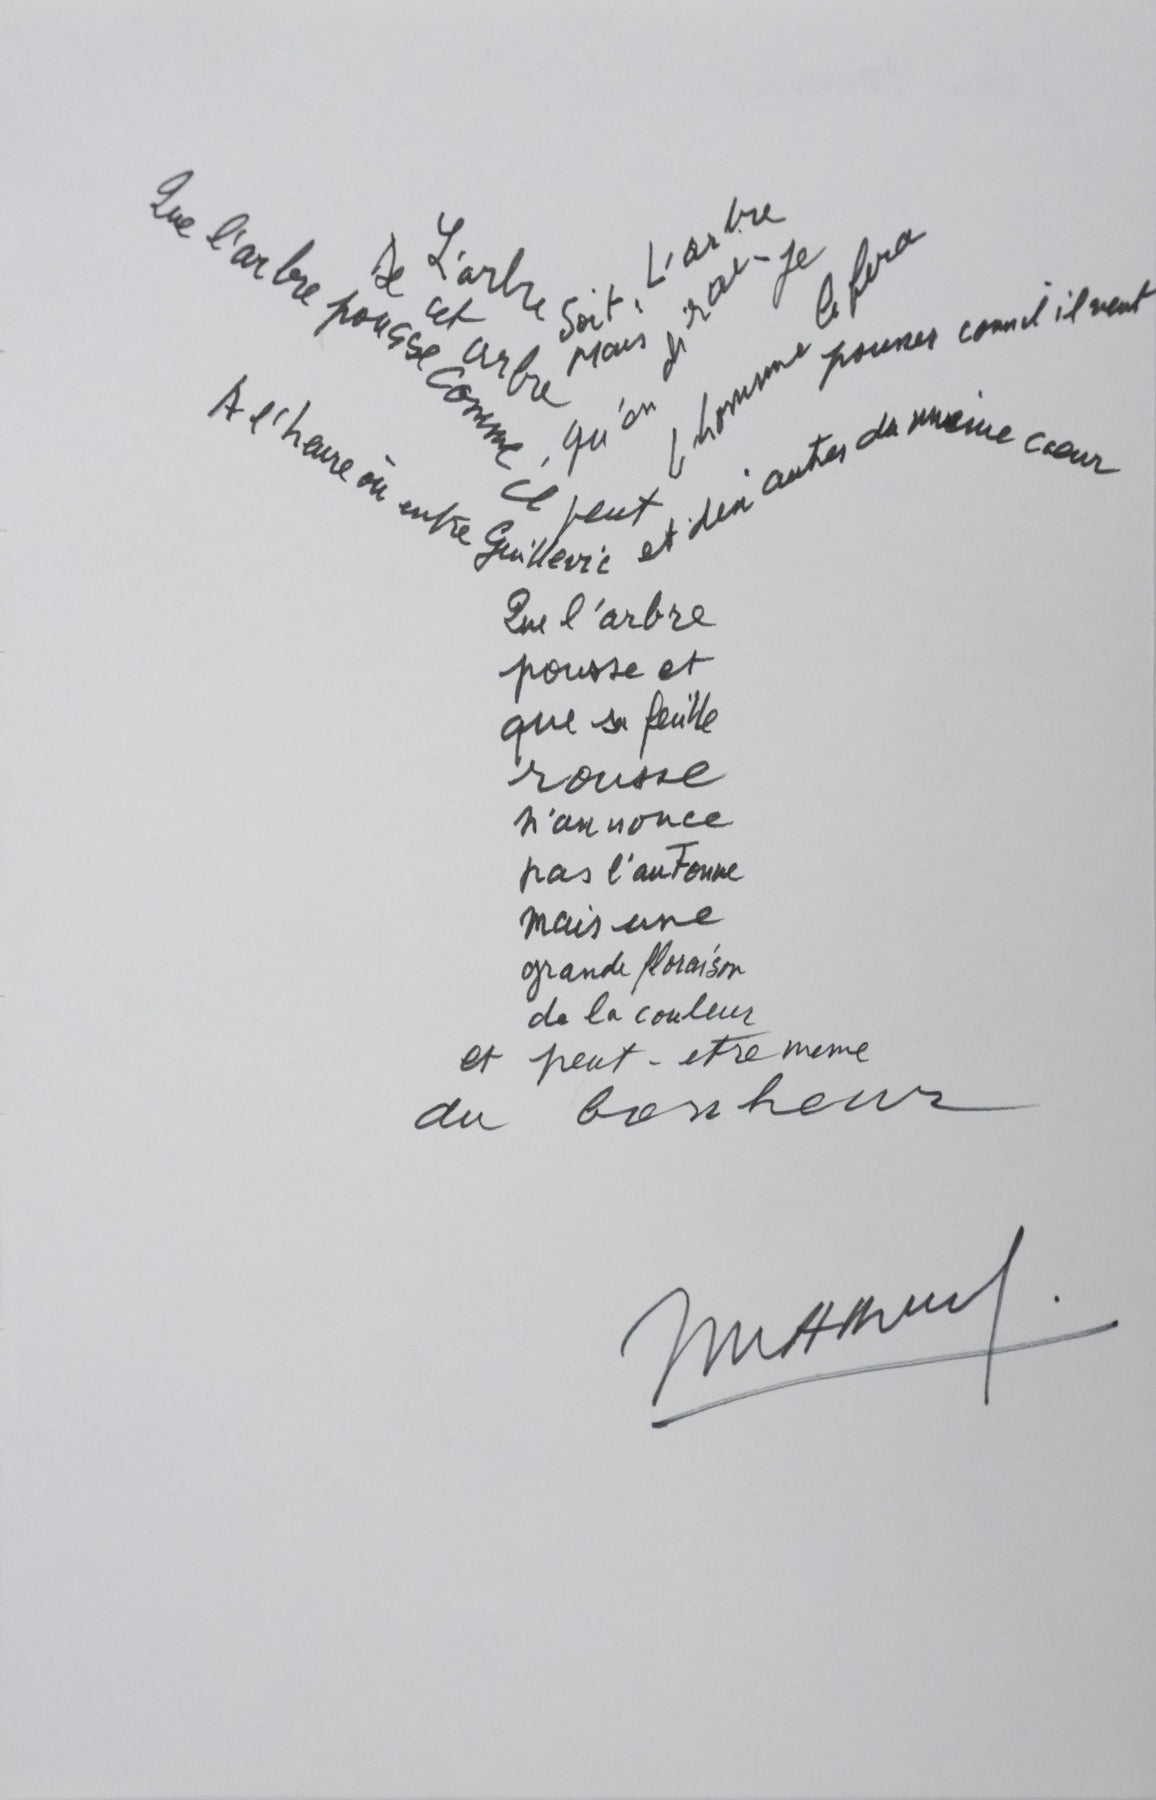 L'arbre soit, L'arbre
De cet arbre mais qu'en dirai-je
Que l'arbre pousse comme il peut l'homme le fera pousser comme il veut
A l'heure où entre Guillevic et dix autres du même cœur
Que l'arbre
pousse et
que sa feuille
rousse
n'annonce
pas l'auTomne
mais une
grande floraison
de la couleur
et peut-etre meme
du bonheur